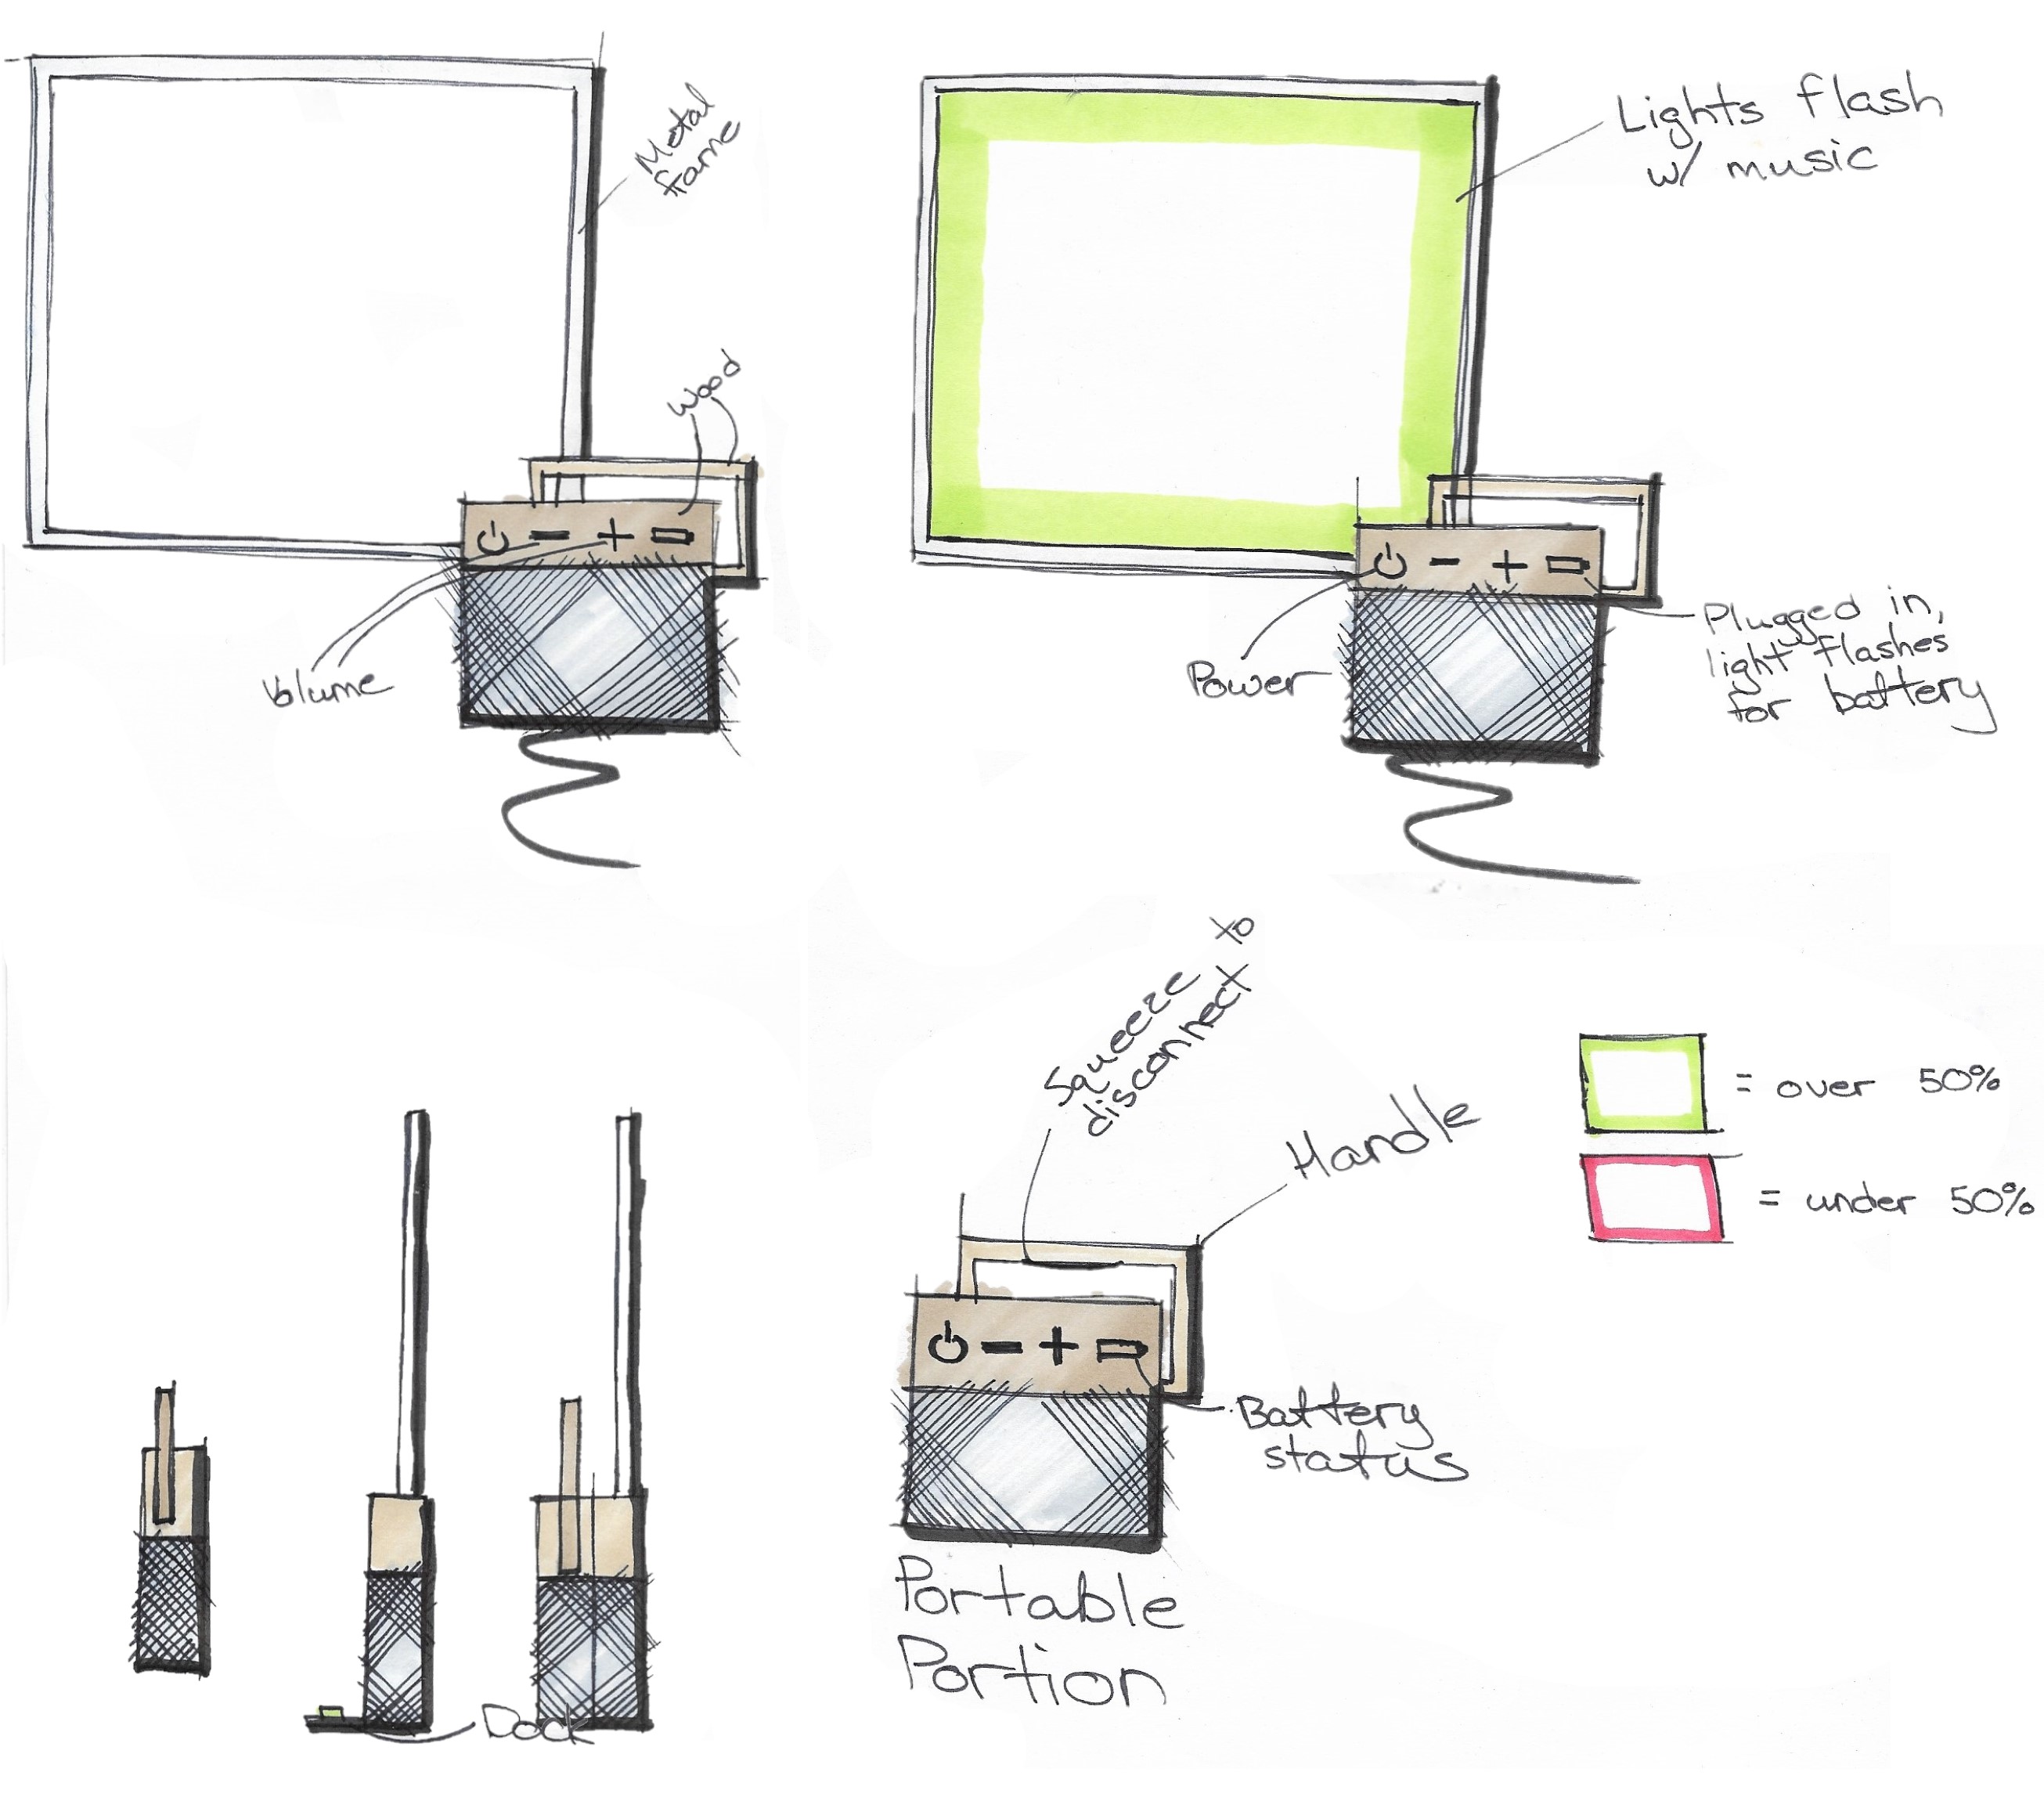 Metal
frame
Wood
Volume
Lights flash
w/ music
Power
Plugged in,
light flashes
for battery
Squeeze to
disconnect
Handle
= over 50%
= under 50%
Battery
status
Portable
Portion
Dock